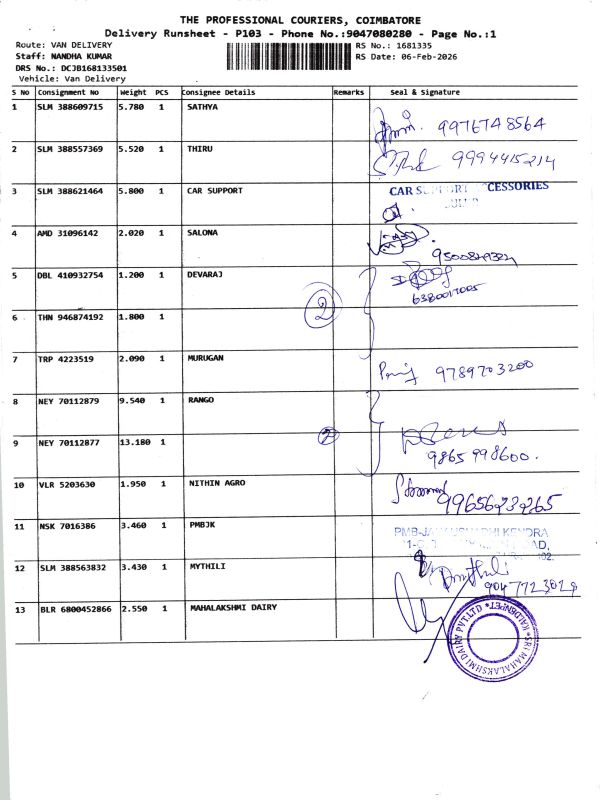 THE PROFESSIONAL COURIERS, COIMBATORE
Delivery Runsheet - P103 - Phone No.:9047080280 - Page No.:1
Route: VAN DELIVERY
RS No.: 1681335
Staff: NANDHA KUMAR
RS Date: 06-Feb-2026
DRS No.: DCJB168133501
Vehicle: Van Delivery
S No Consignment No Weight PCS Consignee Details Remarks Seal & Signature
1 SLM 388609715 5.780 1 SATHYA
9976748564
2 SLM 388557369 5.520 1 THIRU
9994415214
3 SLM 388621464 5.800 1 CAR SUPPORT
CAR SUPPORT ACCESSORIES
4 AMD 31096142 2.020 1 SALONA
5 DBL 410932754 1.200 1 DEVARAJ
6380017005
2
6 THN 946874192 1.800 1
7 TRP 4223519 2.090 1 MURUGAN
9789703200
8 NEY 70112879 9.540 1 RANGO
9 NEY 70112877 13.180 1
2
9865998600.
10 VLR 5203630 1.950 1 NITHIN AGRO
9965623265
11 NSK 7016386 3.460 1 PMBJK
12 SLM 388563832 3.430 1 MYTHILI
Mythili
13 BLR 6800452866 2.550 1 MAHALAKSHMI DAIRY
* SRI MAHALAKSHMI DAIRY PVT.LTD *